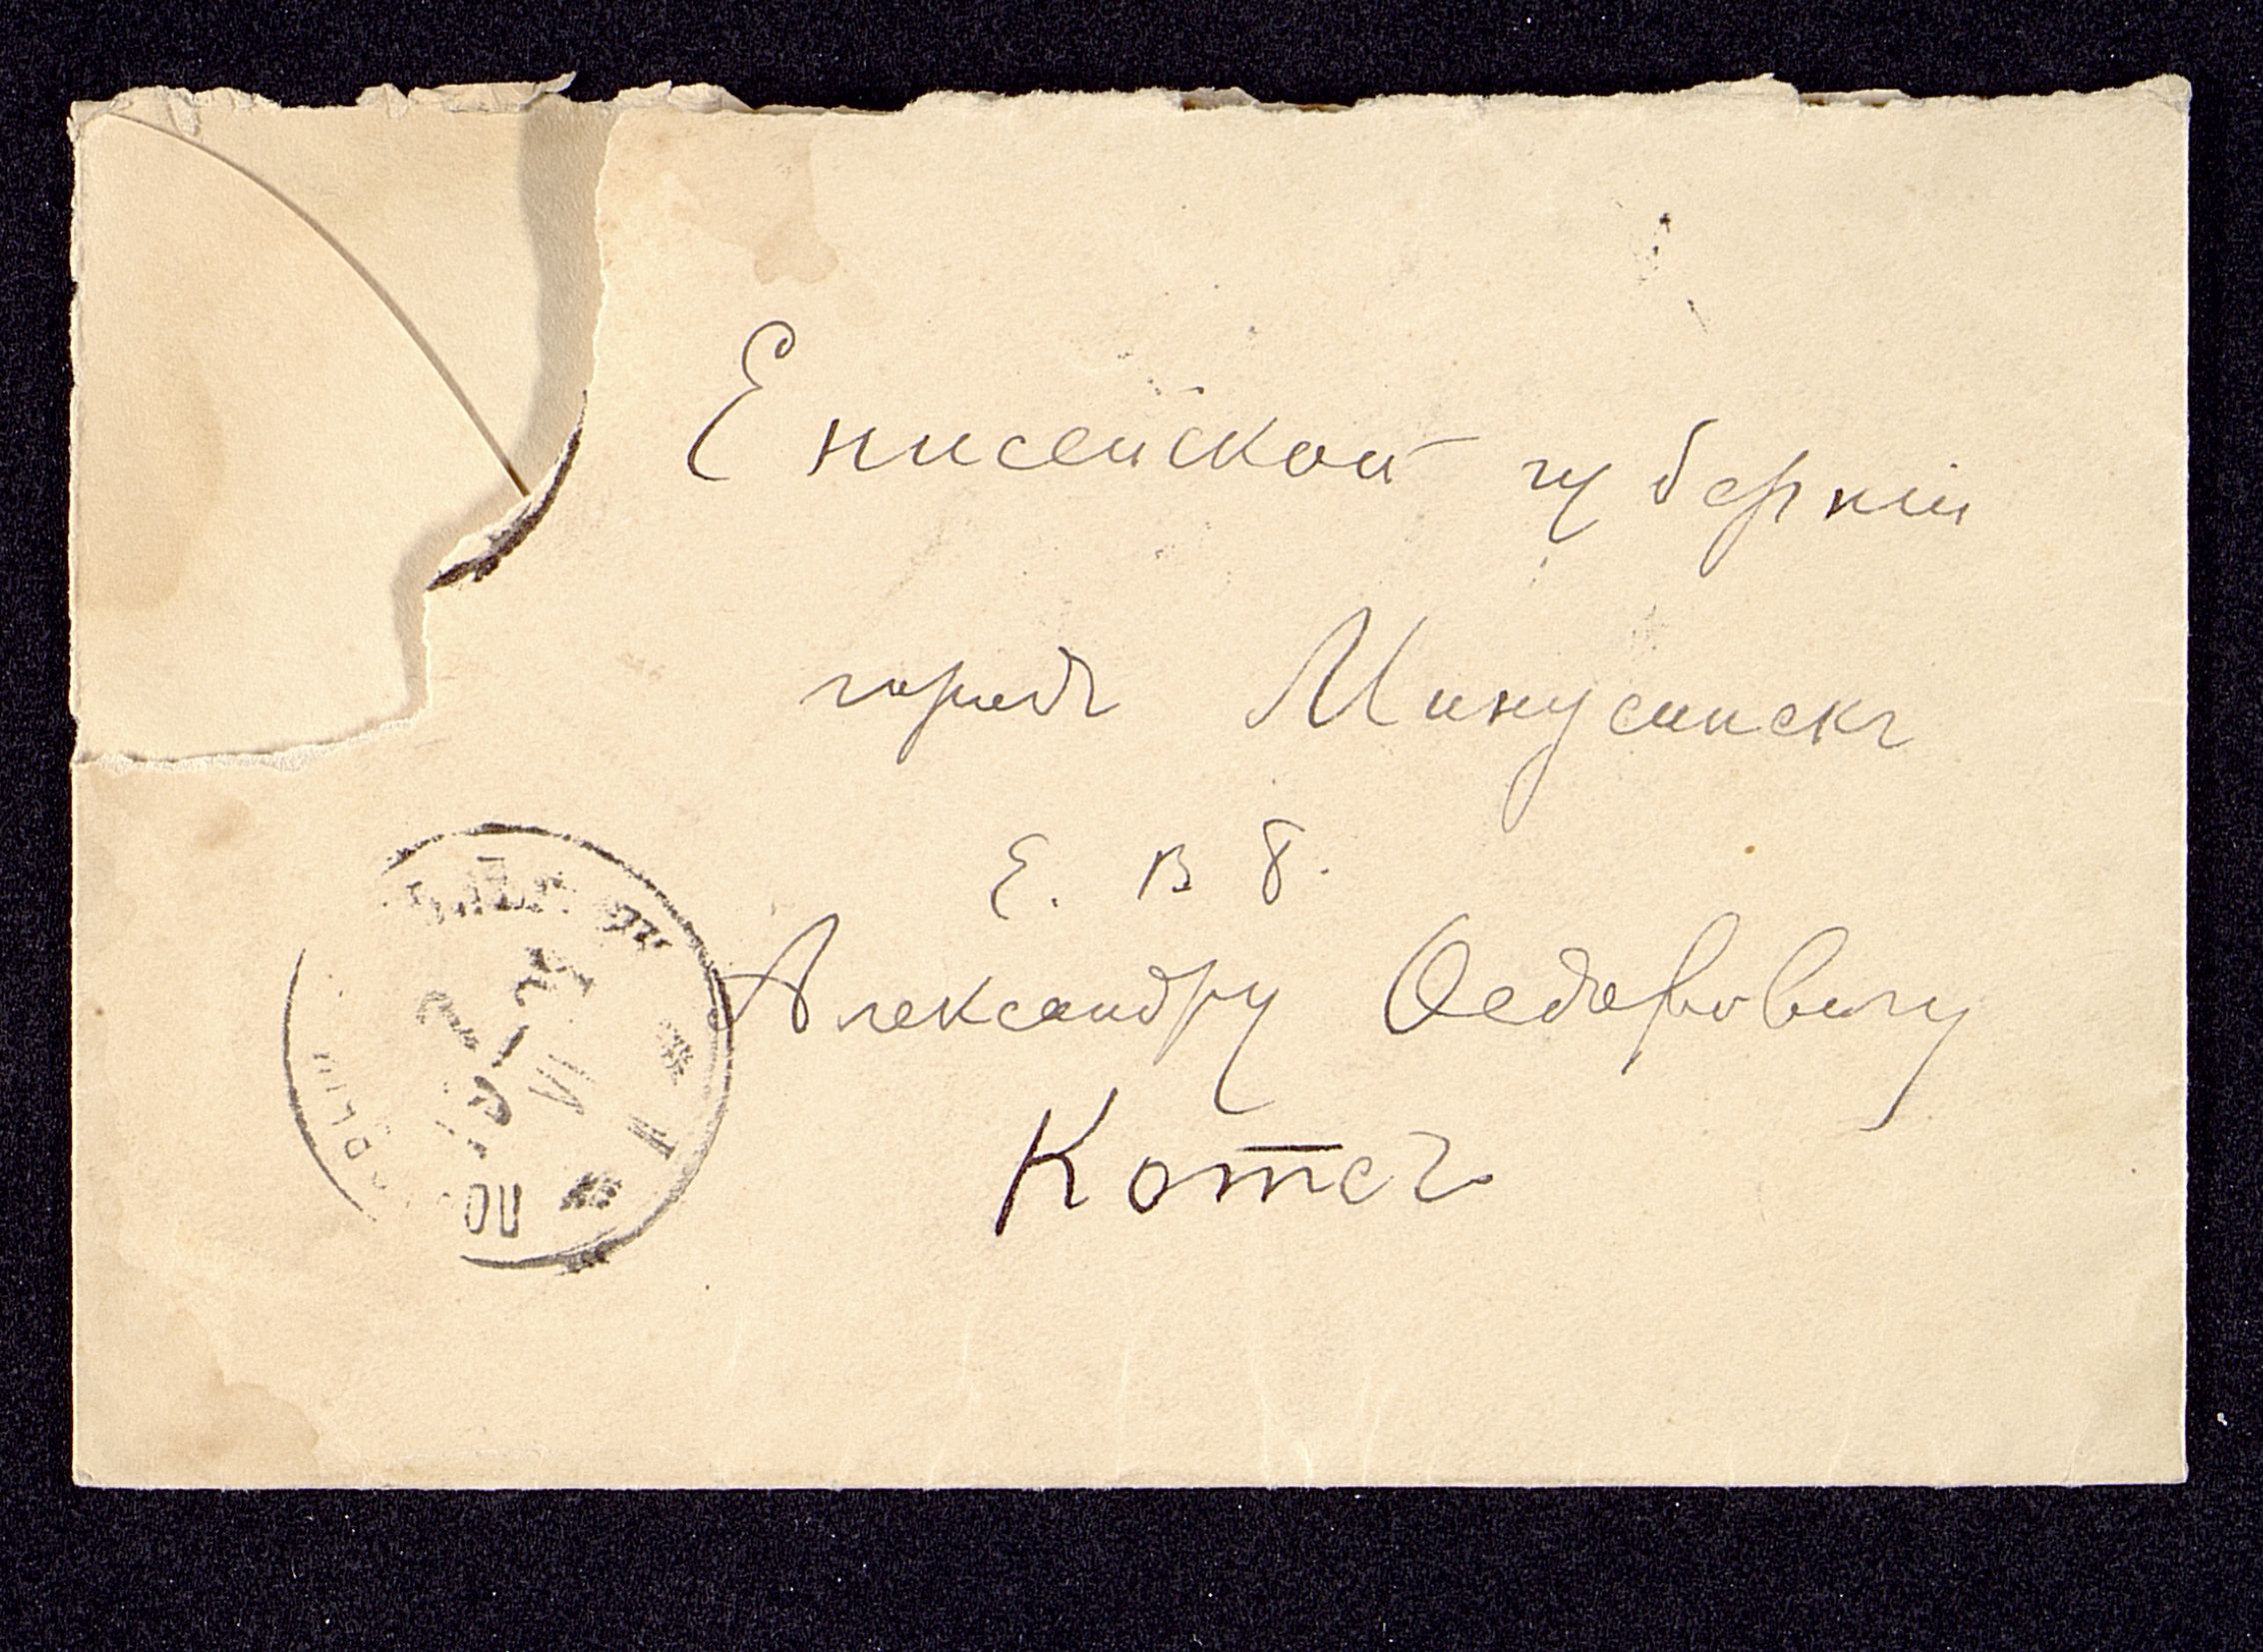 Енисейской губернiи
городъ Минусинскъ
Е. В Б.
Александру Ѳедоровичу
Котсъ
ПО